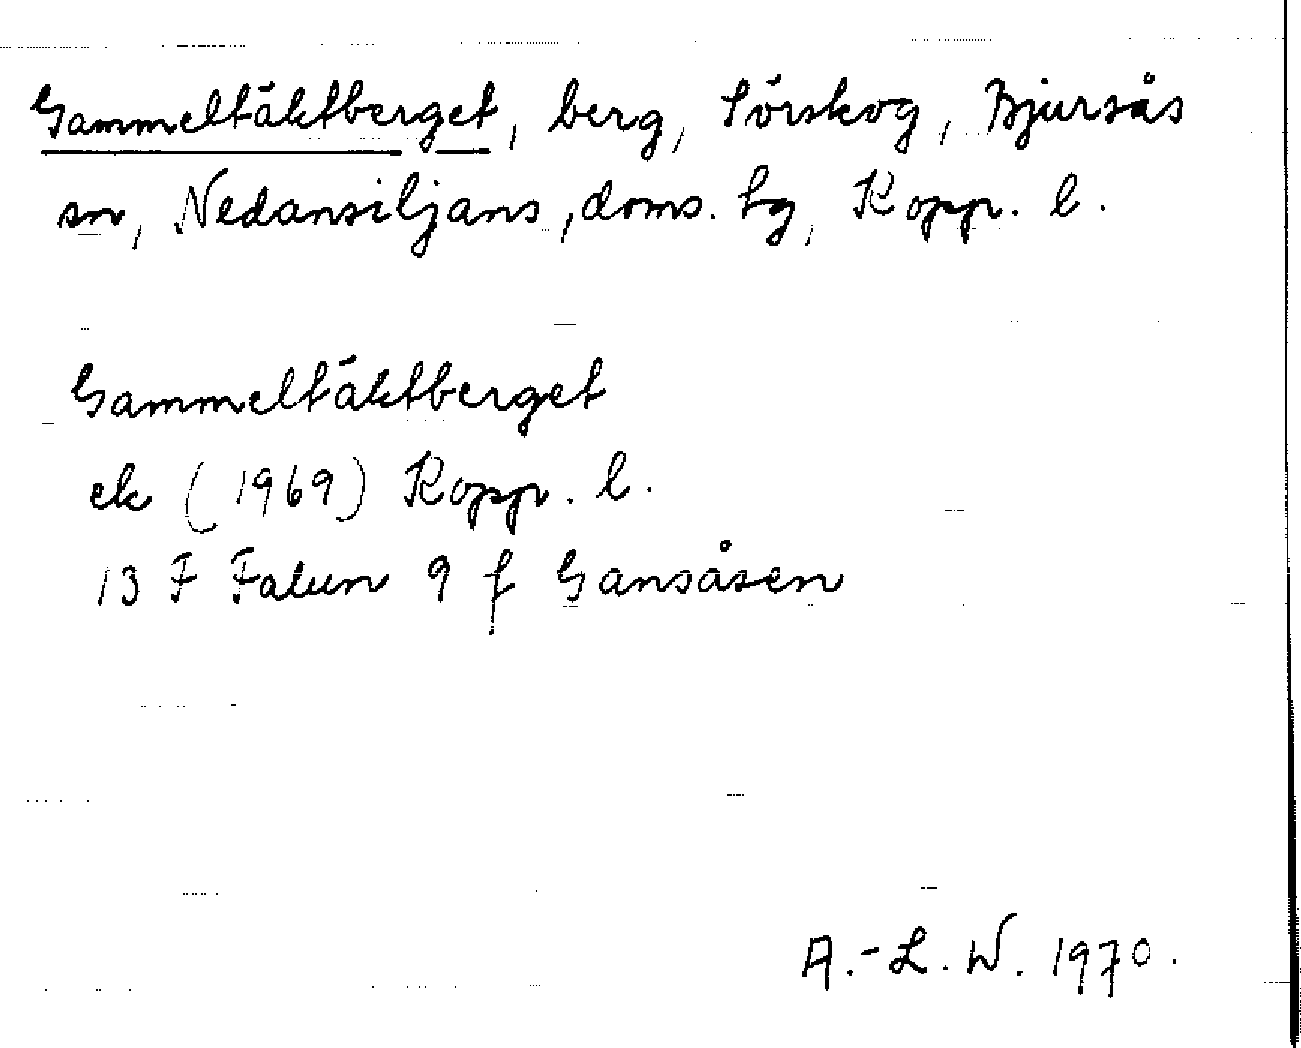 Gammeltäktberget, berg, Sörskog, Bjursås
sn, Nedansiljans, doms. hg, Kopp. l.
Gammeltäktberget
ek (1969) Kopp. l.
13 F Falun 9 f Gansåsen
A.-L. W. 1970.